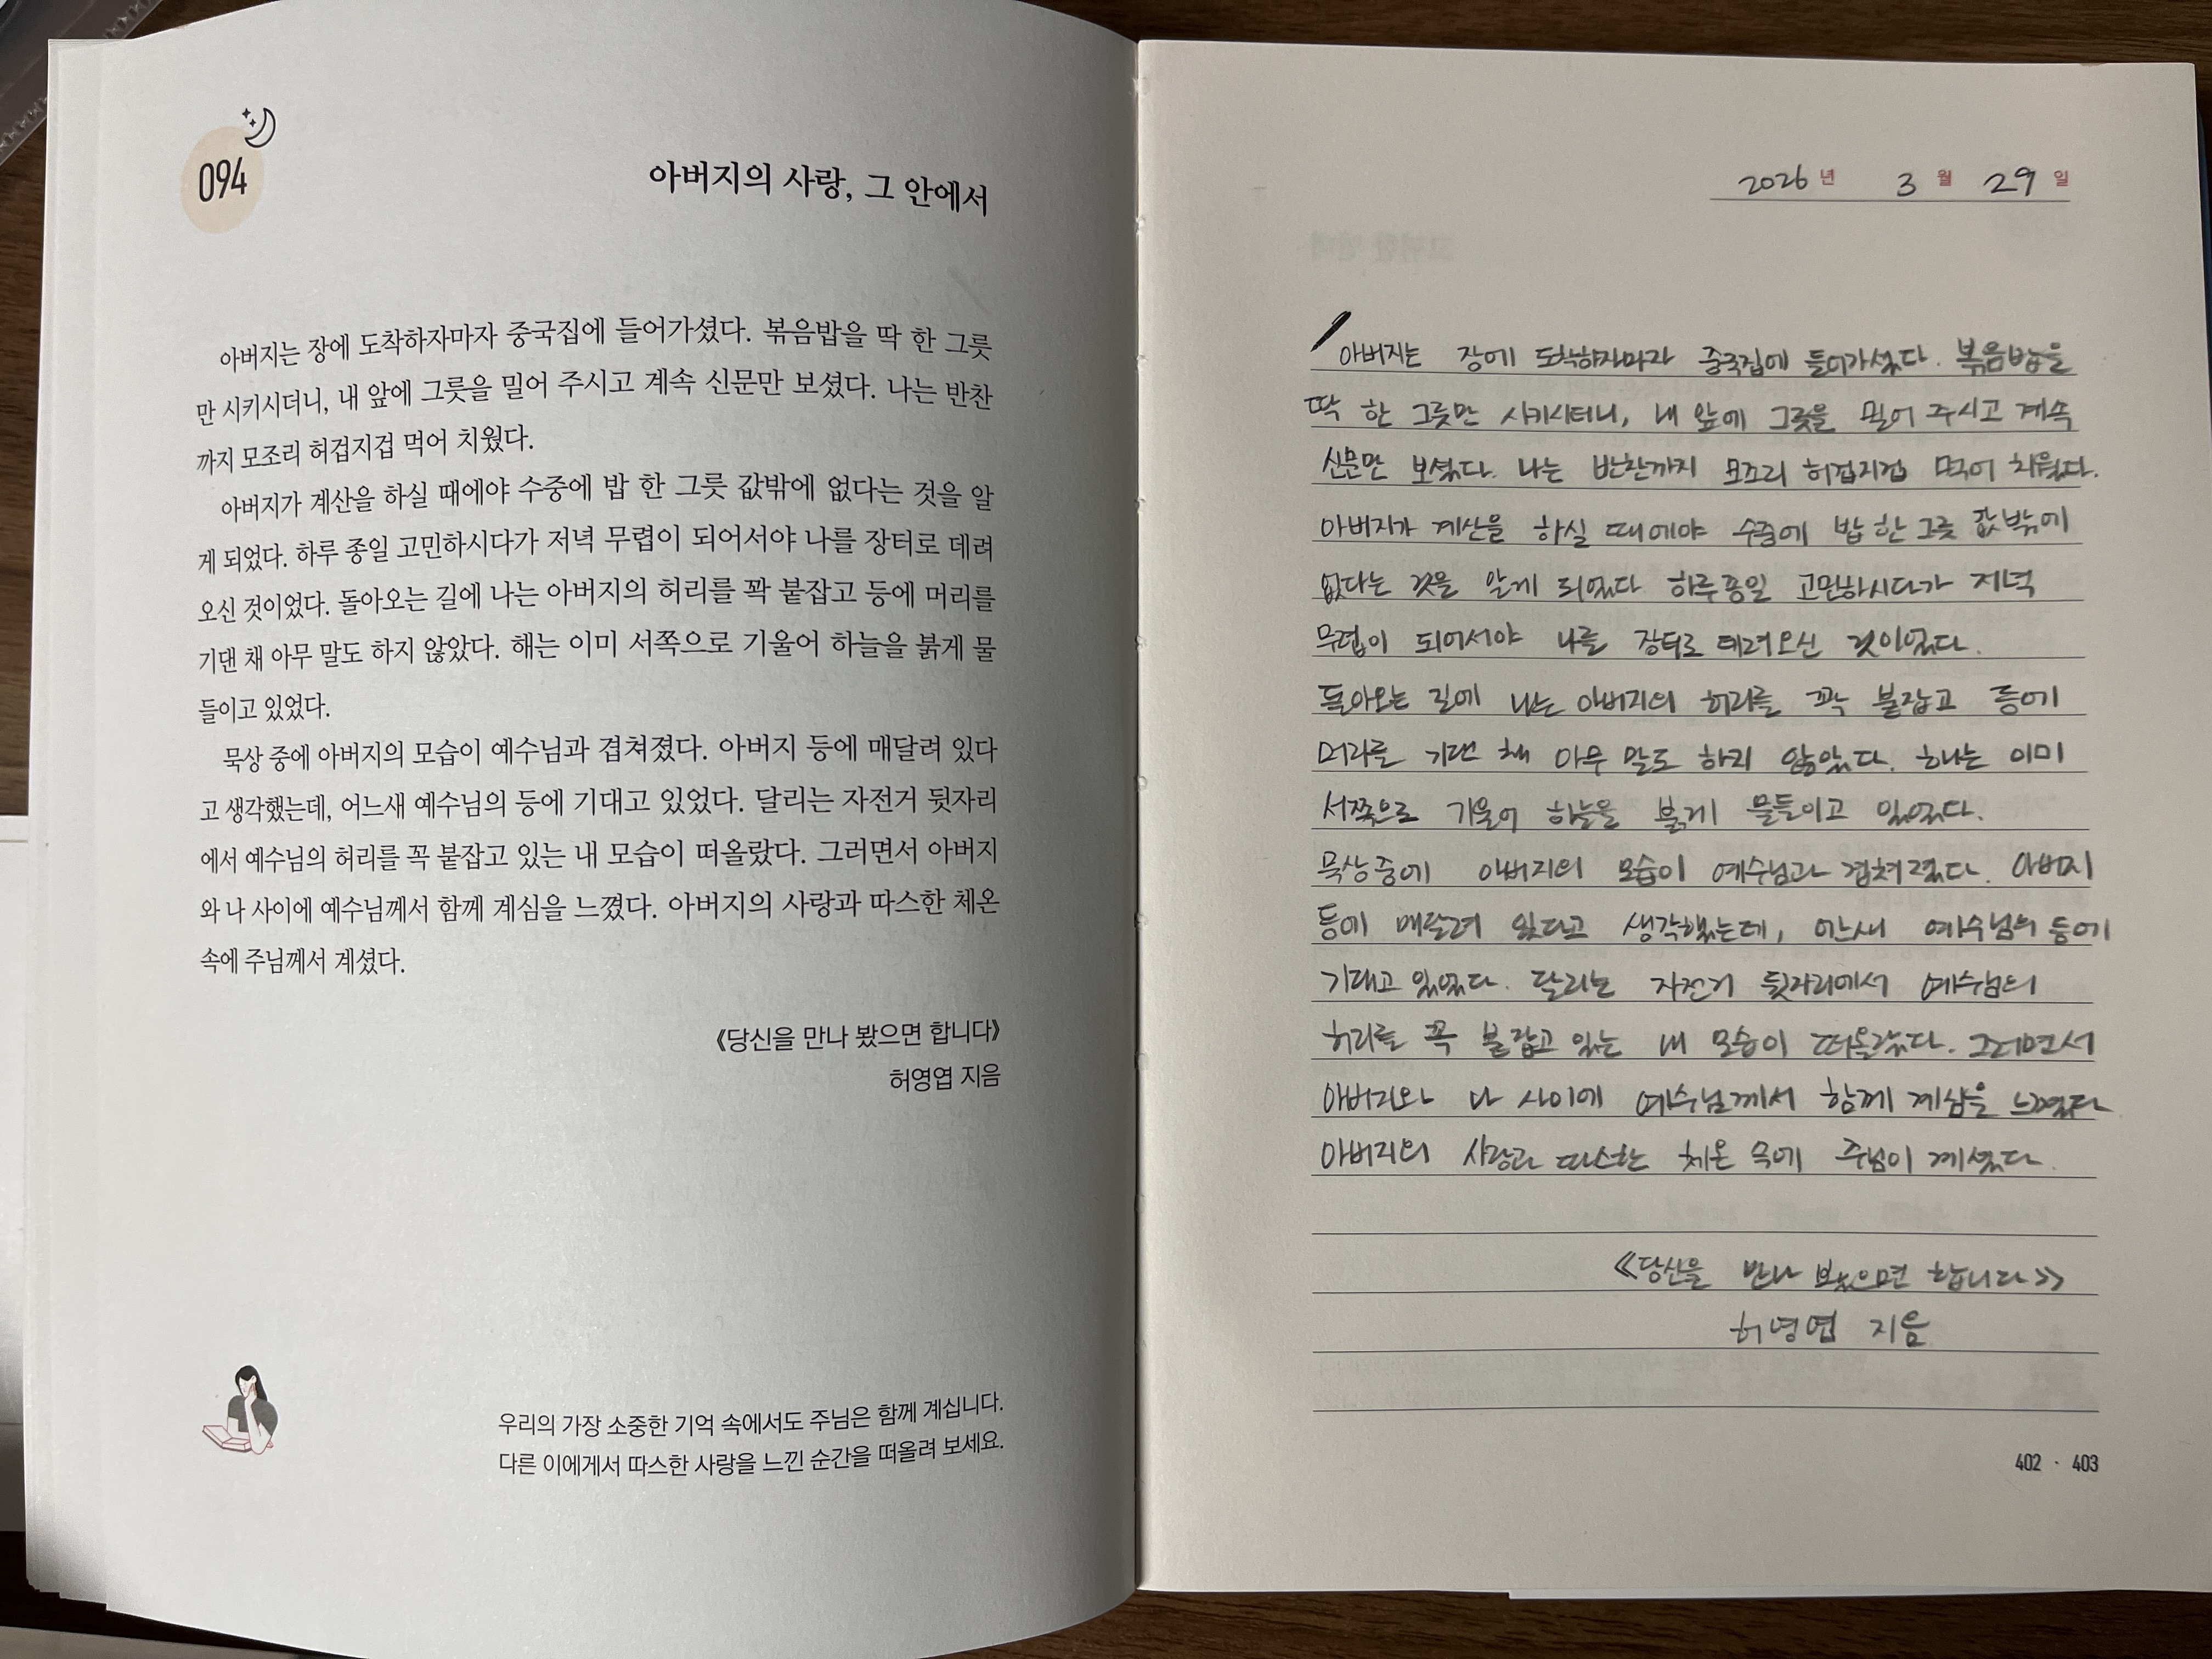 094
아버지의 사랑, 그 안에서
아버지는 장에 도착하자마자 중국집에 들어가셨다. 볶음밥을 딱 한 그릇
만 시키시더니, 내 앞에 그릇을 밀어 주시고 계속 신문만 보셨다. 나는 반찬
까지 모조리 허겁지겁 먹어 치웠다.
아버지가 계산을 하실 때에야 수중에 밥 한 그릇 값밖에 없다는 것을 알
게 되었다. 하루 종일 고민하시다가 저녁 무렵이 되어서야 나를 장터로 데려
오신 것이었다. 돌아오는 길에 나는 아버지의 허리를 꽉 붙잡고 등에 머리를
기댄 채 아무 말도 하지 않았다. 해는 이미 서쪽으로 기울어 하늘을 붉게 물
들이고 있었다.
묵상 중에 아버지의 모습이 예수님과 겹쳐졌다. 아버지 등에 매달려 있다
고 생각했는데, 어느새 예수님의 등에 기대고 있었다. 달리는 자전거 뒷자리
에서 예수님의 허리를 꼭 붙잡고 있는 내 모습이 떠올랐다. 그러면서 아버지
와 나 사이에 예수님께서 함께 계심을 느꼈다. 아버지의 사랑과 따스한 체온
속에 주님께서 계셨다.
《당신을 만나 봤으면 합니다》
허영엽 지음
우리의 가장 소중한 기억 속에서도 주님은 함께 계십니다.
다른 이에게서 따스한 사랑을 느낀 순간을 떠올려 보세요.
2026년 3월 29일
아버지는 장에 도착하자마자 중국집에 들어가셨다. 볶음밥을
딱 한 그릇만 시키시더니, 내 앞에 그릇을 밀어 주시고 계속
신문만 보셨다. 나는 반찬까지 모조리 허겁지겁 먹어 치웠다.
아버지가 계산을 하실 때에야 수중에 밥 한 그릇 값밖에
없다는 것을 알게 되었다 하루종일 고민하시다가 저녁
무렵이 되어서야 나를 장터로 데려오신 것이었다.
돌아오는 길에 나는 아버지의 허리를 꽉 붙잡고 등에
머리를 기댄 채 아무 말도 하지 않았다. 해는 이미
서쪽으로 기울어 하늘을 붉게 물들이고 있었다.
묵상중에 아버지의 모습이 예수님과 겹쳐졌다. 아버지
등에 매달려 있다고 생각했는데, 어느새 예수님의 등에
기대고 있었다. 달리는 자전거 뒷자리에서 예수님의
허리를 꼭 붙잡고 있는 내 모습이 떠올랐다. 그러면서
아버지와 나 사이에 예수님께서 함께 계심을 느꼈다
아버지의 사랑과 따스한 체온 속에 주님이 계셨다.
《당신을 만나 봤으면 합니다》
허영엽 지음
402 · 403